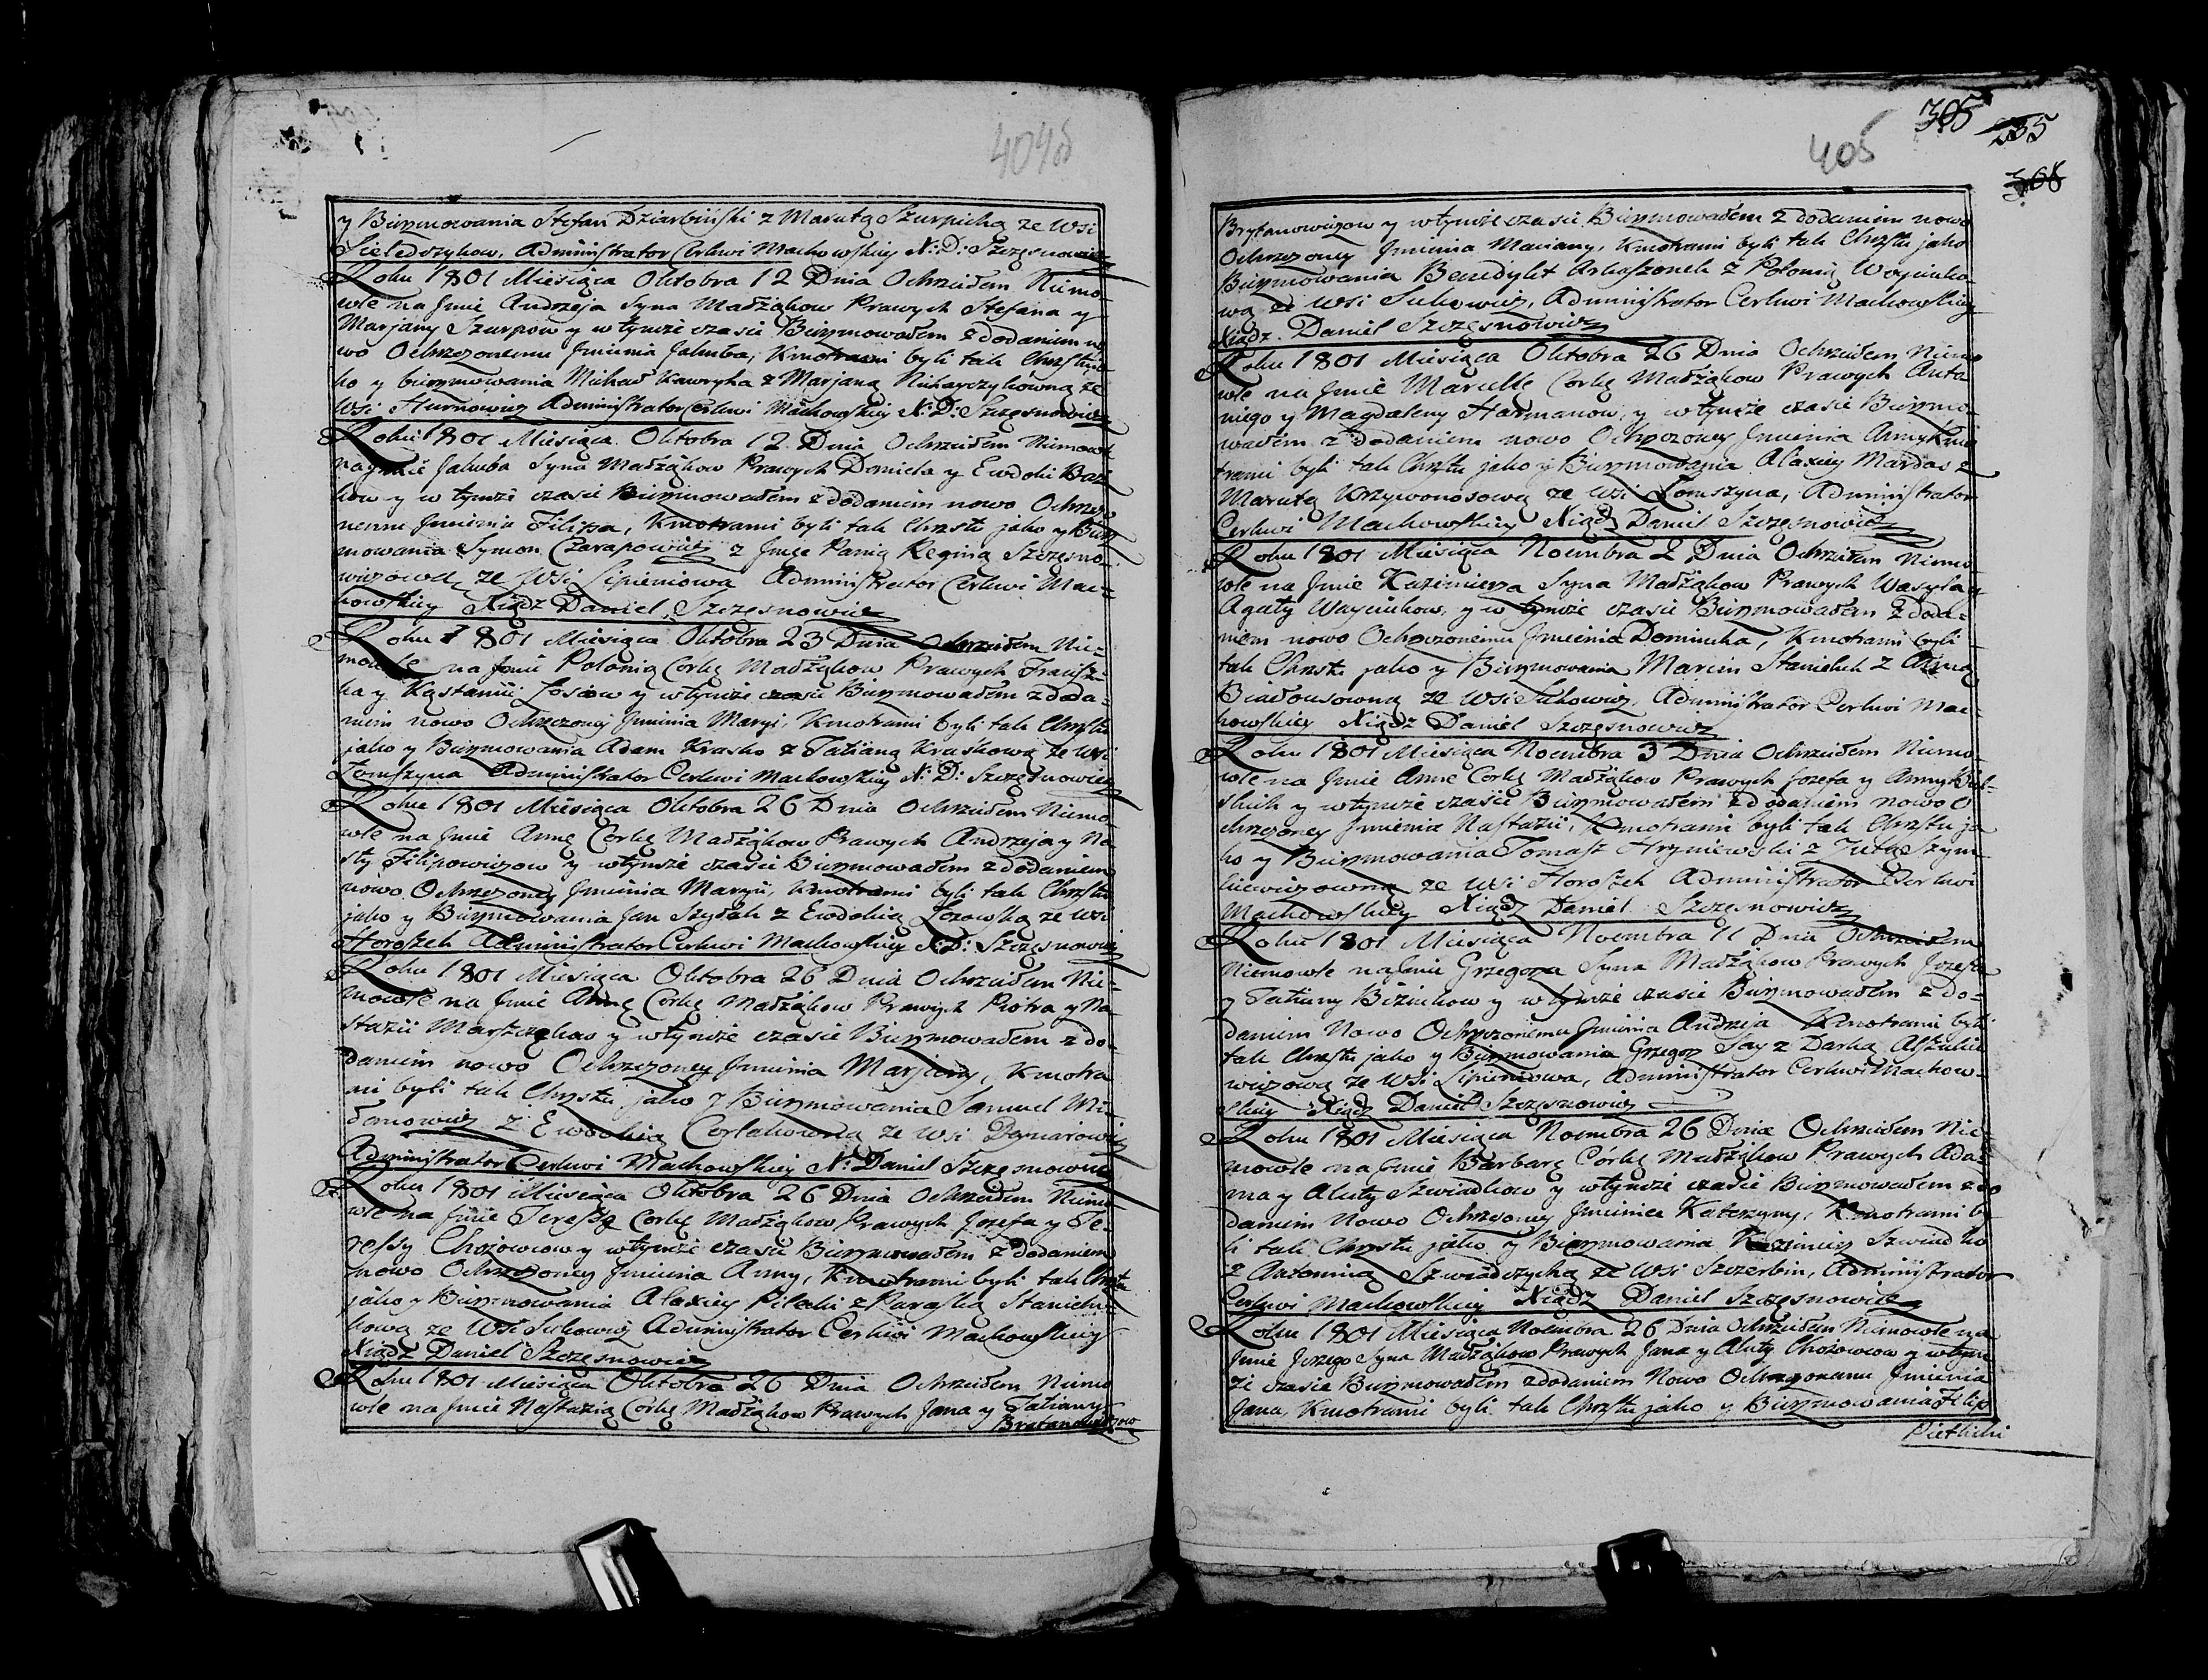 404об
y Bierzmowania Stefan Dziarbiński z Marutą Szurpichą ze Wsi
Sieledczykow. Administrator Cerkwi Machowskiey X: D: Szczęsnowicz
Roku 1801 Miesiąca Oktobra 12 Dnia Ochrzciłem Niemo-
wle na Jmie Andrzeja Syna Małżąkow Prawych Stefana y
Marjany Szurpow y w tymże czasie Bierzmowałem z dodaniem no
wo Ochrzczonemu Jmienia Jakuba, Kmotrami byli tak Chrztu ja
ko y bierzmowania Michał Kawryha z Marjaną ze
Wsi Hurnowicz Administrator Cerkwi Machowskiey X: D: Szczęsnowicz
Roku 1801 Miesiąca Oktobra 12 Dnia Ochrzciłem Niemowl
na Jmie Jakuba Syna Małżąkow Prawych Daniela y Ewdoki Baż
kow y w tymże czasie Bierzmowałem z dodaniem nowo Ochrzczo
nemu Jmienia Filipa, Kmotrami byli tak Chrztu jako y Bierz
mowania Symon Czarapowicz z Jmce Panią Reginą Szczęsno
wiczową ze Wsi Lipieniowa Administrator Cerkwi Mac-
howskiey Xiądz Daniel Szczęsnowicz
Roku 1801 Miesiąca Oktobra 23 Dnia Ochrzciłem Nie-
mowle na Jmie Polonią Corkę Małżąkow Prawych Franciszk
ka y Kąstancii Łosiow y w tymże czasie Bierzmowałem z doda-
niem nowo Ochrzczoney Jmienia Maryi, Kmotrami byli tak Chrztu
jako y Bierzmowania Adam Krasko z Tatianą Kraskową ze Wsi
Łomszyna Administrator Cerkwi Machowskiey X: D: Szczęsnowicz
Roku 1801 Miesiąca Oktobra 26 Dnia Ochrzciłem Niemo
wle na Jmie Annę Corkę Małżąkow Prawych Andrzeja y Na
sty Filipowiczow y w tymże czasie Bierzmowałem z dodaniem
nowo Ochrzczoney Jmienia Maryi, Kmotrami byli tak Chrztu
jako y Bierzmowania Jan Szydłak z Ewdokią Łozowską ze Wsi
Horoszek Administrator Cerkwi Machowskiey X: D: Szczęsnowicz
Roku 1801 Miesiąca Oktobra 26 Dnia Ochrzciłem Nie-
mowle na Jmie Annę Corkę Małżąkow Prawych Piotra y Na
stazii Marszczakow y w tymże czasie Bierzmowałem z do-
daniem nowo Ochrzczoney Jmienia Marjany, Kmotra
mi byli tak Chrztu jako y Bierzmowania Samuel Mi-
z Ewdokią ze Wsi
Administrator Cerkwi Machowskiey X: Daniel Szczęsnowicz
Roku 1801 Miesiąca Oktobra 26 Dnia Ochrzciłem Niemo
wle na Jmie Teressę Corkę Małżąkow Prawych Jozefa y Te-
ressy Chożowcow y w tymże czasie Bierzmowałem z dodaniem
nowo Ochrzczoney Jmienia Anny, Kmotrami byli tak Chrztu
jako y Bierzmowania Alaxiey Pilecki z Paraską Stanielu-
kową ze Wsi Sukowicz Administrator Cerkwi Machowskiey
Xiądz Daniel Szczęsnowicz
Roku 1801 Miesiąca Oktobra 26 Dnia Ochrzciłem Niemo
wle na Jmie Nastazią Corkę Małżąkow Prawych Jana y Tatiany
Brytanowiczow
405
305
235
308
Brytanowiczow y w tymże czasie Bierzmowałem z dodaniem nowo
Ochrzczoney Jmienia Mariany, Kmotrami byli tak Chrztu jako
Bierzmowania Benedykt z Polonią Woyciuko-
wą ze Wsi Sukowicz, Administrator Cerkwi Machowskiey
Xiądz Daniel Szczęsnowicz
Roku 1801 Miesiąca Oktobra 26 Dnia Ochrzciłem Niemo
wle na Jmie Marellę Corkę Małżąkow Prawych Anto
niego y Magdaleny Harmanow, y w tymże czasie Bierzmo-
wałem z dodaniem nowo Ochrzczoney Jmienia Anny Kmo
trami byli tak Chrztu jako y Bierzmowania Alaxiey Mardas z
Marutą Krzywonosową ze Wsi Łomszyna, Administrator
Cerkwi Machowskiey Xiądz Daniel Szczęsnowicz
Roku 1801 Miesiąca Noembra 2 Dnia Ochrzciłem Niemo-
wle na Jmie Kazimierza Syna Małżąkow Prawych Wasyla y
Agaty Woyciukow, y w tymże czasie Bierzmowałem z doda-
niem nowo Ochrzczonemu Jmienia Dominika, Kmotrami byli
tak Chrztu jako y Bierzmowania Marcin Staniluk z Anną
Białousowną ze Wsi Sukowicz, Administrator Cerkwi Mac-
howskiey Xiądz Daniel Szczęsnowicz
Roku 1801 Miesiąca Noembra 3 Dnia Ochrzciłem Niemo-
wle na Jmie Annę Corkę Małżąkow Prawych Jozefa y Anny
y w tymże czasie Bierzmowałem z dodaniem nowo O
chrzczoney Jmienia Nastazii, Kmotrami byli tak Chrztu ja
ko y Bierzmowania Tomasz Hryniewski z Jutą Szym-
kiewiczowną ze Wsi Horoszek Administrator Cerkwi
Machowskiey Xiądz Daniel Szczęsnowicz
Roku 1801 Miesiąca Noembra 11 Dnia Ochrzciłem
Niemowle na Jmie Grzegorza Syna Małżąkow Prawych Jozefa
y Tatiany Biziukow y w tymże czasie Bierzmowałem z do-
daniem Nowo Ochrzczonemu Jmienia Andrzeja Kmotrami byli
tak Chrztu jako y Bierzmowania Grzegorz Say z Darką
wiczową ze Wsi Lipieniowa, Administrator Cerkwi Machow-
skiey Xiądz Daniel Szczęsnowicz
Roku 1801 Miesiąca Noembra 26 Dnia Ochrzciłem Nie-
mowle na Jmie Barbarę Córkę Małżąkow Prawych Ada-
ma y Aluty Szwiadkow y w tymże czasie Bierzmowałem z do
daniem Nowo Ochrzczoney Jmienia Katerzyny, Kmotrami by
li tak Chrztu jako y Bierzmowania Kazimierz Szwiadko
z Antoniną Szwiadczychą ze Wsi Szczerbin, Administrator
Cerkwi Machowskiey Xiądz Daniel Szczęsnowicz
Roku 1801 Miesiąca Noembra 26 Dnia Ochrzciłem Niemowle na
Jmie Jerzego Syna Małżąkow Prawych Jana y Aluty Chożowcow y w tym
że czasie Bierzmowałem z dodaniem Nowo Ochrzczonemu Jmienia
Jana, Kmotrami byli tak Chrztu jako y Bierzmowania Filip
Pietlicki